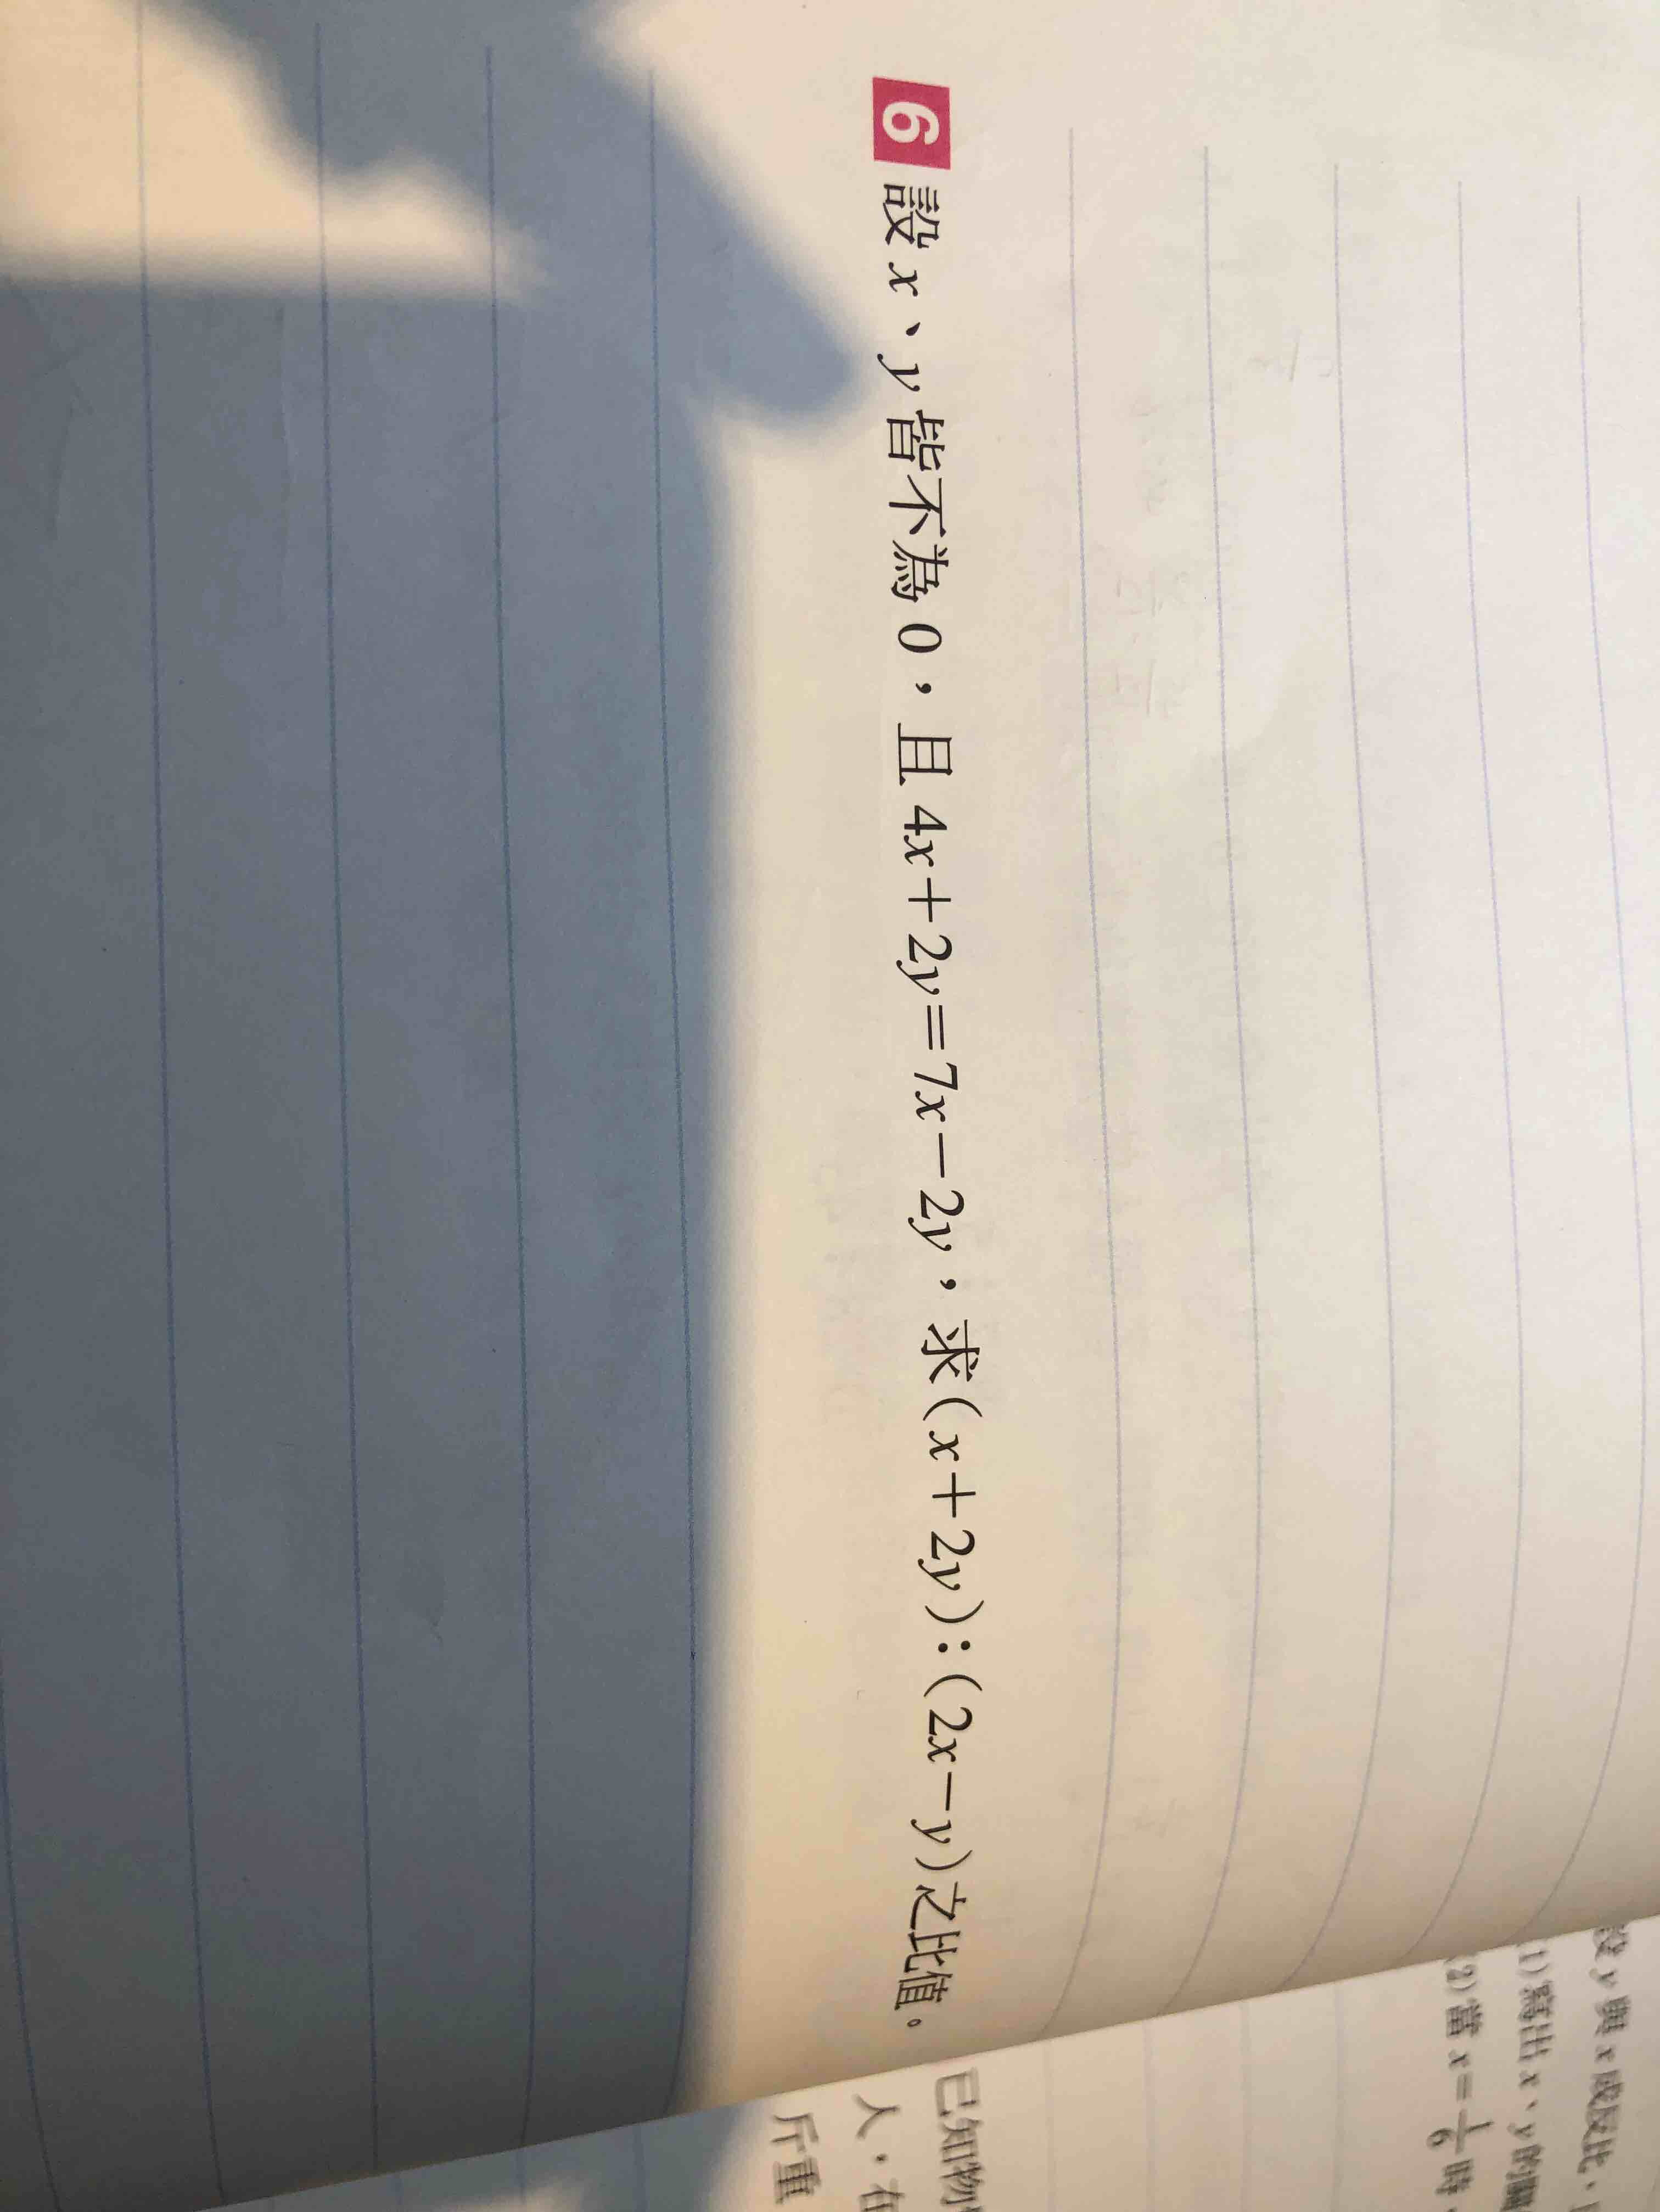 6 設x、y皆不為0，且4x+2y=7x-2y，求(x+2y):(2x-y)之比值。
設y與x成反比，
(1)寫出x、y的關
(2)當x=1/6時，
已知物
人，在
斤重